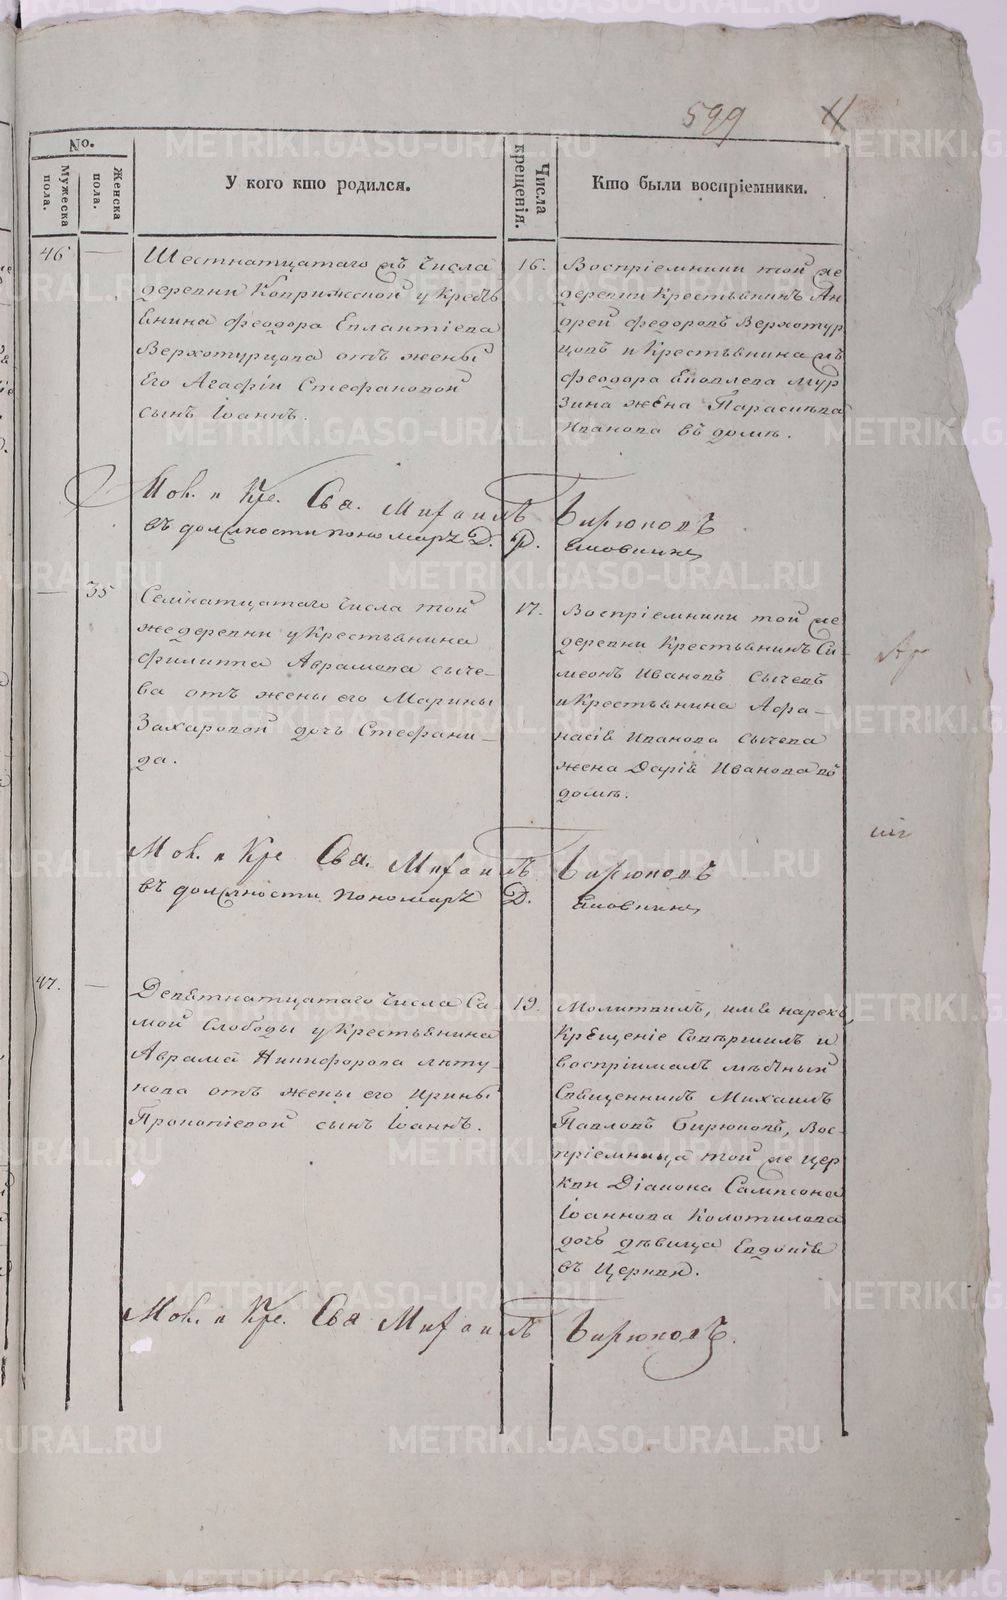 599 11
No.
Мужеска пола.
Женска пола.
У кого кто родился.
Числа крещенія.
Кто были воспріемники.
46 —
Шестнатцатаго числа
деревни Коприжской у Крестья
янина Феодора Евлантіева
Верхотурцова отъ жены
Его Агафіи Стефановой
сынъ Іоаннъ.
16.
Воспріемники той же
деревни Крестьянинъ Ан
дрей Федоровъ Верхотур
цовъ и Крестьянина
Феодора Яковлева Мур
зина жена Параскева
Иванова въ домѣ.
Мол. и Кре. Свя. Михаилъ Бирюковъ
въ должности пономаря Д. Р.
— 35
Семнатцатаго числа той
же деревни у Крестьянина
Филиппа Аврамова Сыче-
ва отъ жены его Марины
Захаровой дочь Стефани-
да.
17.
Воспріемники той же
деревни Крестьянинъ Си-
меонъ Ивановъ Сычевъ
и Крестьянина Афа-
насія Иванова Сычева
жена Дарія Иванова въ
домѣ.
Мол. и Кре Свя. Михаилъ Бирюковъ
въ должности пономаря Д.
47. —
Девятнатцатаго числа Са
мой Слободы у Крестьянина
Аврама Никифорова Лѣту-
нова отъ жены его Ирины
Прокопіевой сынъ Іоаннъ.
19.
Молитвилъ, имя нарекъ,
Крещеніе Совершилъ и
воспріималъ мѣстный
Священникъ Михаилъ
Павловъ Бирюковъ, Вос-
пріемница той же Цер
кви Діакона Сампсона
Іоаннова Колотилова
дочь дѣвица Евдокія
въ Церкви.
Мол. и Кре. Свя Михаилъ Бирюковъ.
METRIKI.GASO-URAL.RU